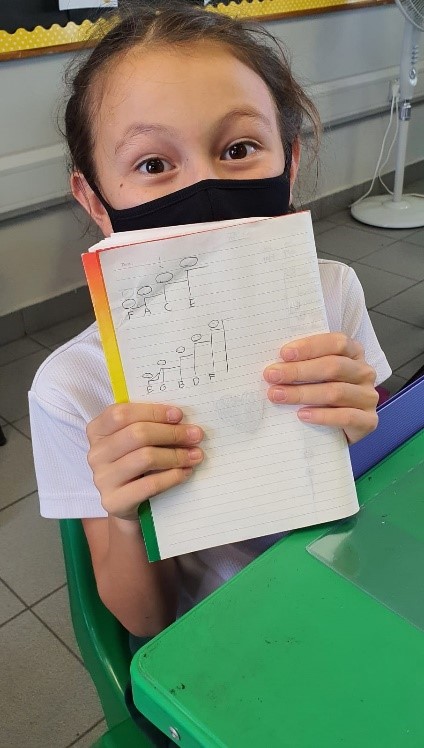 F A C E
E G B D F